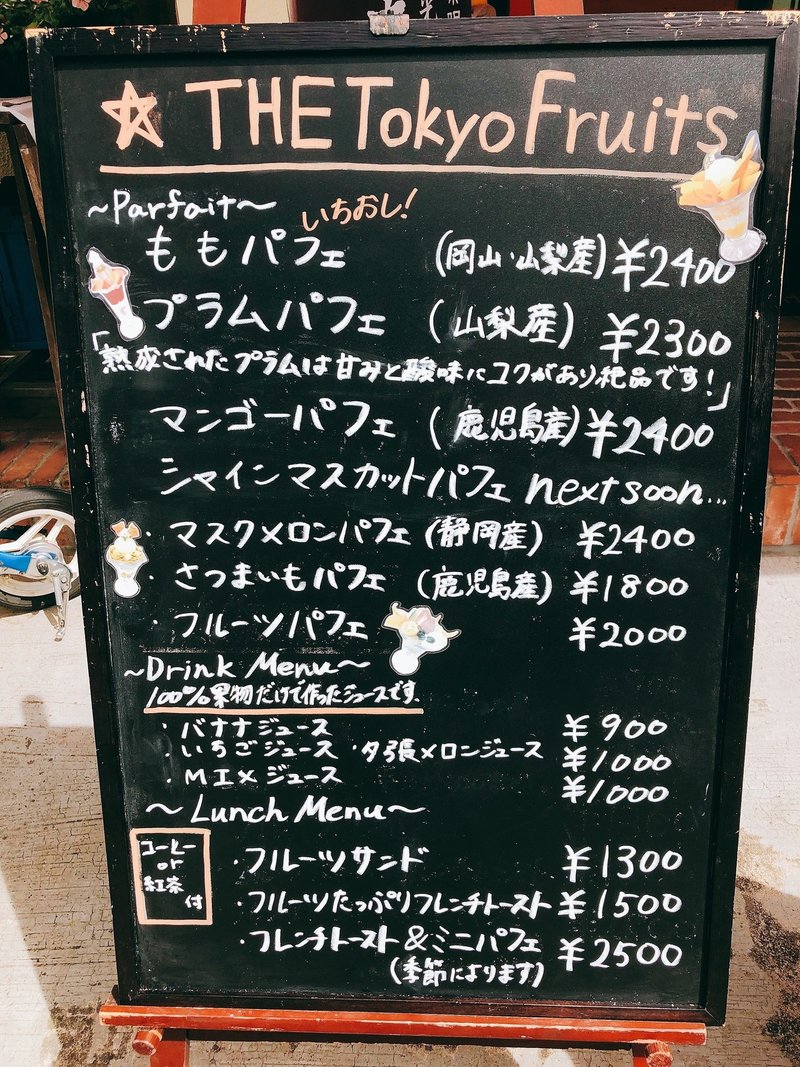 ☆ THE Tokyo Fruits
~Parfait~ いちおし!
ももパフェ (岡山・山梨産) ¥2400
プラムパフェ (山梨産) ¥2300
「熟成されたプラムは甘みと酸味にコクがあり絶品です!」
マンゴーパフェ (鹿児島産) ¥2400
シャインマスカットパフェ next soon...
・マスクメロンパフェ (静岡産) ¥2400
・さつまいもパフェ (鹿児島産) ¥1800
・フルーツパフェ ¥2000
~Drink Menu~
100%果物だけで作ったジュースです.
・バナナジュース ¥900
・いちごジュース ・夕張メロンジュース ¥1000
・MIXジュース ¥1000
~Lunch Menu~
コーヒー
or
紅茶
付
・フルーツサンド ¥1300
・フルーツたっぷりフレンチトースト ¥1500
・フレンチトースト&ミニパフェ ¥2500
(季節によります)